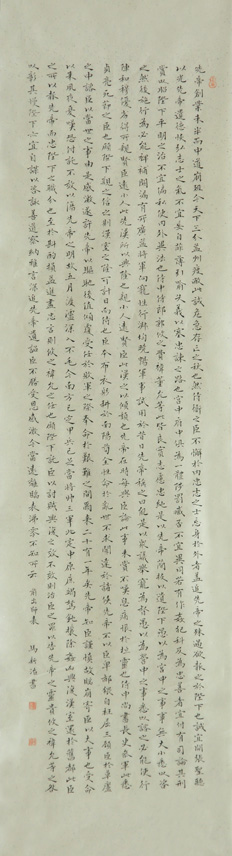 先帝創業未半而中道崩殂今天下三分益州疲敝此誠危急存亡之秋也然侍衛之臣不懈於內忠志之士忘身於外者蓋追先帝之殊遇欲報之於陛下也誠宜開張聖聽
以光先帝遺德恢弘志士之氣不宜妄自菲薄引喻失義以塞忠諫之路也宮中府中俱為一體陟罰臧否不宜異同若有作奸犯科及為忠善者宜付有司論其刑
賞以昭陛下平明之治不宜偏私使內外異法也侍中侍郎郭攸之費禕董允等此皆良實志慮忠純是以先帝簡拔以遺陛下愚以為宮中之事事無大小悉以咨
之然後施行必能裨補闕漏有所廣益將軍向寵性行淑均曉暢軍事試用於昔日先帝稱之曰能是以眾議舉寵為督愚以為營中之事悉以咨之必能使行
陣和穆優劣得所親賢臣遠小人此先漢所以興隆也親小人遠賢臣此後漢所以傾頹也先帝在時每與臣論此事未嘗不歎息痛恨於桓靈也侍中尚書長史參軍此悉
貞亮死節之臣也願陛下親之信之則漢室之隆可計日而待也臣本布衣躬耕於南陽苟全性命於亂世不求聞達於諸侯先帝不以臣卑鄙猥自枉屈三顧臣於草廬
之中諮臣以當世之事由是感激遂許先帝以驅馳後值傾覆受任於敗軍之際奉命於危難之間爾來二十有一年矣先帝知臣謹慎故臨崩寄臣以大事也受命
以來夙夜憂歎恐付託不效以傷先帝之明故五月渡瀘深入不毛今南方已定甲兵已足當獎帥三軍北定中原庶竭駑鈍攘除奸凶興復漢室還於舊都此臣
之所以報先帝而忠陛下之職分也至於斟酌損益進盡忠言則攸之禕允之任也願陛下託臣以討賊興復之效不效則治臣之罪以告先帝之靈責攸之禕允等之咎
以彰其慢陛下亦宜自謀以咨諏善道察納雅言深追先帝遺詔臣不勝受恩感激今當遠離臨表涕零不知所云 前出師表 馬新治書